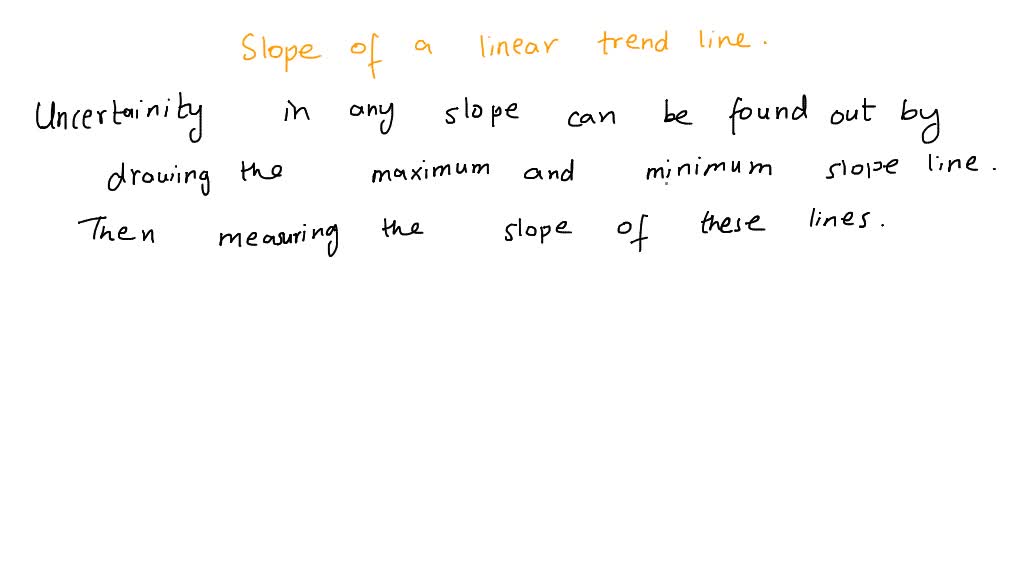 Slope of a linear trend line.
Uncertainity in any slope can be found out by
drowing the maximum and minimum slope line.
Then measuring the slope of these lines.